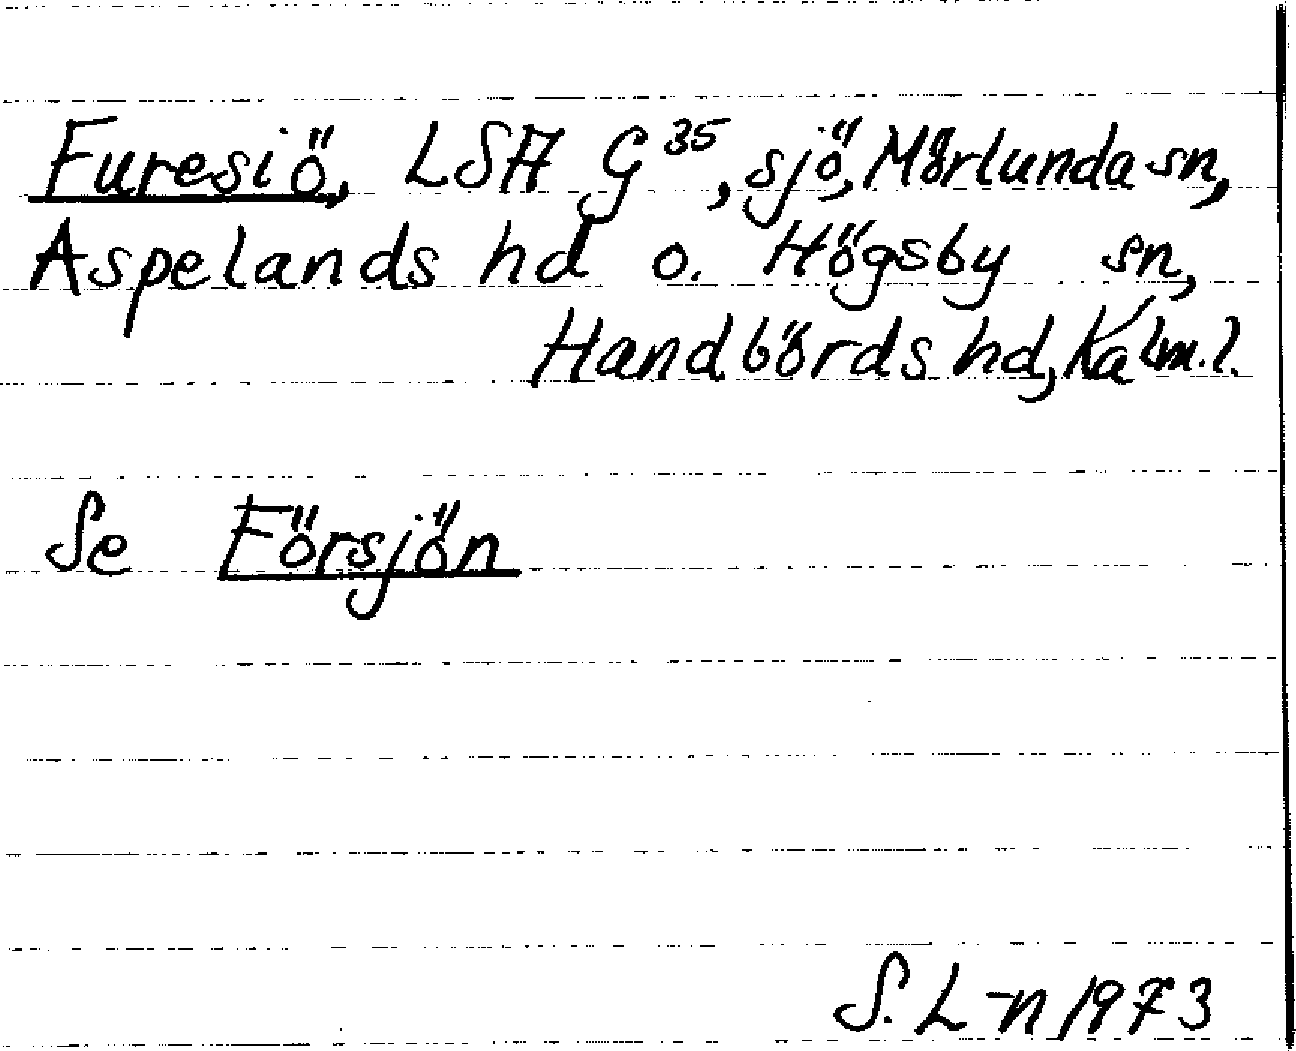 Furesiö, LSA G 35, sjö, Mörlunda sn,
Aspelands hd o. Högsby sn,
Handbörds hd, Kalm.l.
Se Försjön
S. L-n 1973